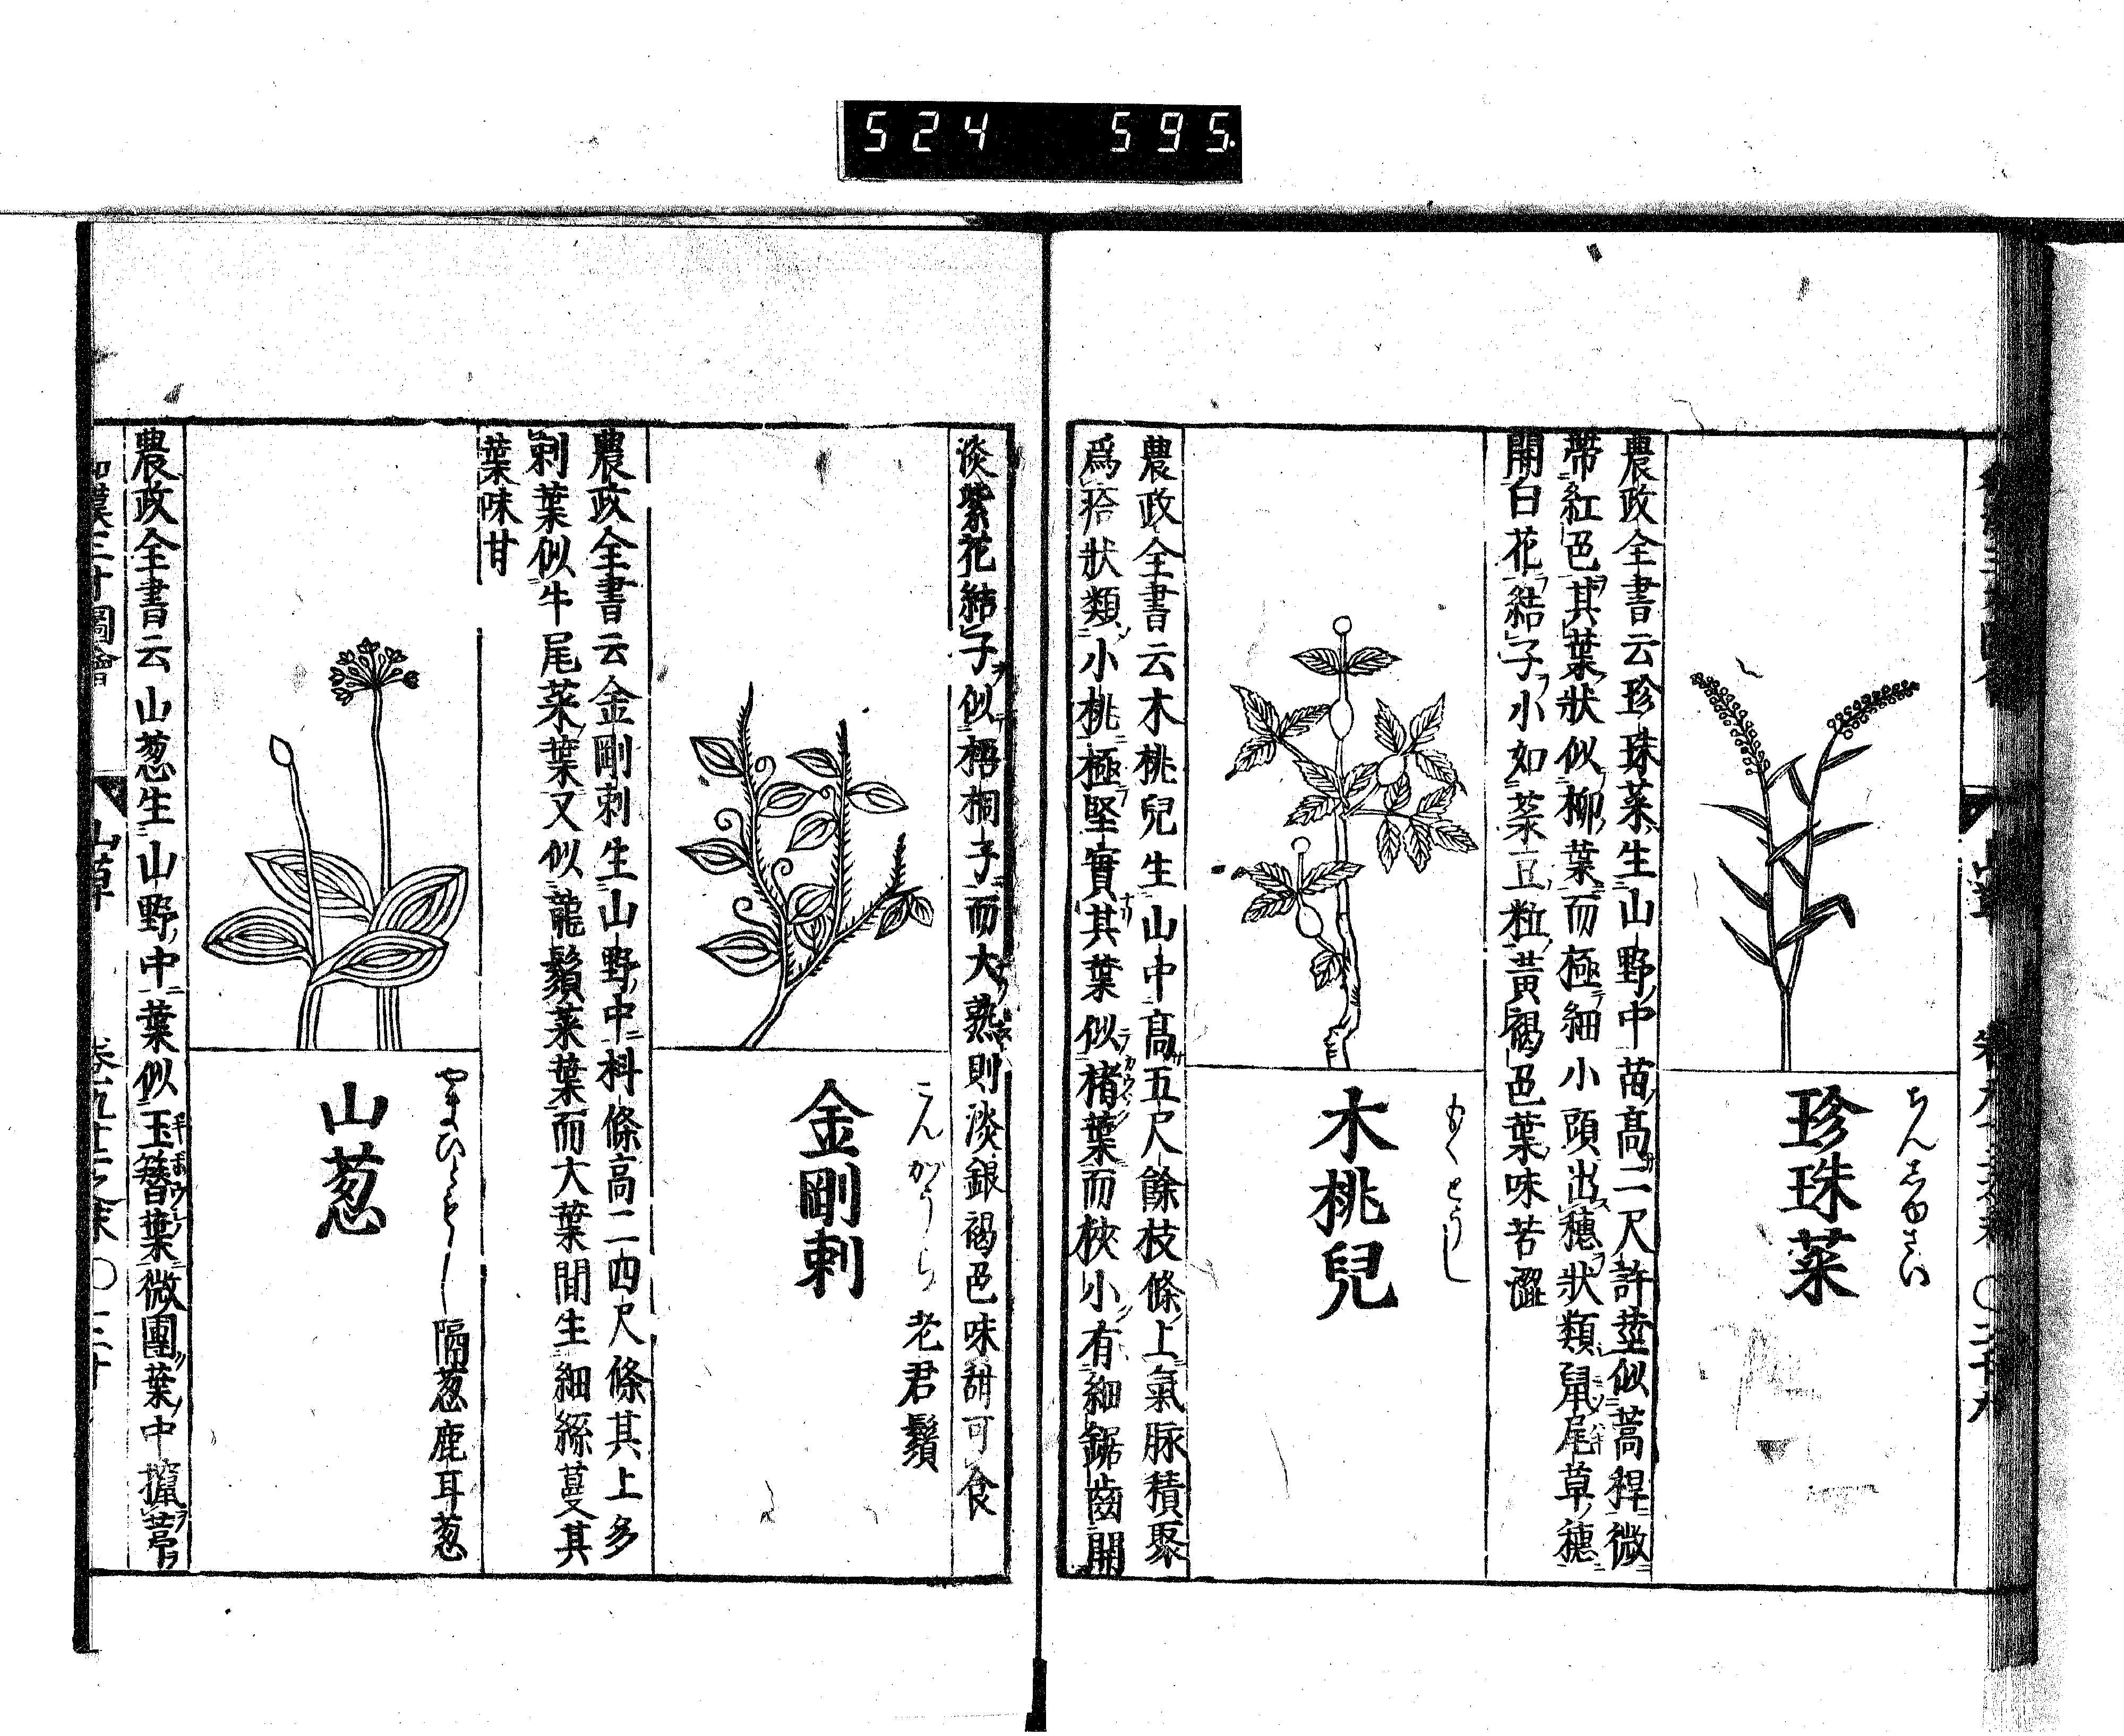 524 595
珍珠菜
ちんしゆさい
農政全書云珍珠菜生山野中苗高二尺許莖似蒿稈微
帶紅色其葉狀似柳葉而極細小頭出穗狀類鼠尾草穗
開白花結子小如菉豆粒黃褐色葉味苦澀
木桃兒
もくとうし
農政全書云木桃兒生山中高五尺餘枝條上氣脉積聚
爲疙狀類小桃極堅實其葉似楮葉而狹小有細鋸齒開
淡紫花結子似梧桐子而大熟則淡銀褐色味甜可食
金剛刺
こんがうら 老君鬚
農政全書云金剛刺生山野中科條高二四尺條其上多
刺葉似牛尾菜葉又似龍鬚菜葉而大葉間生細絲蔓其
葉味甘
山葱
やまひともし 隔葱鹿耳葱
農政全書云山葱生山野中葉似玉簪葉微團葉中攛葶
山草